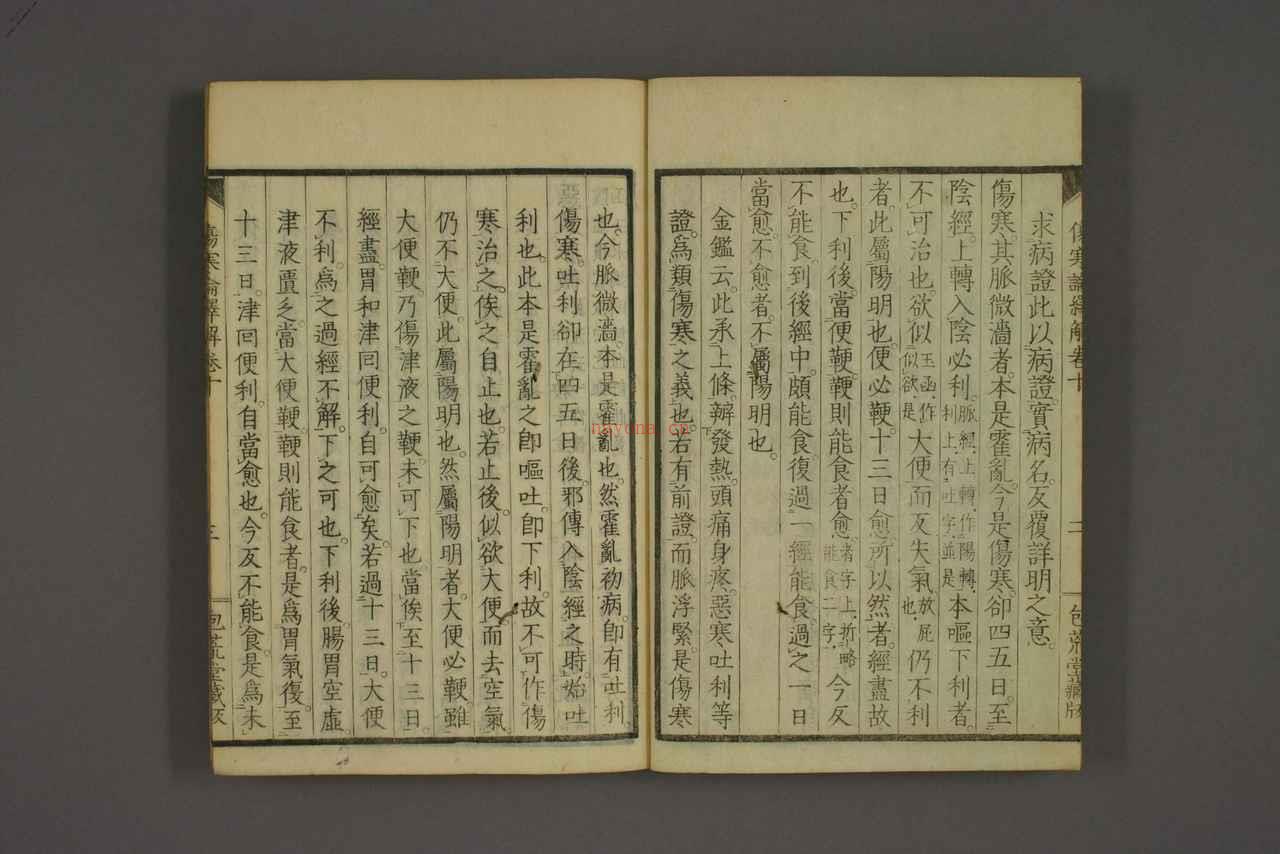 傷寒論繹解卷十　二　包荒堂藏版
求病證此以病證實病名反覆詳明之意。
傷寒其脈微濇者本是霍亂今是傷寒卻四五日至
陰經上轉入陰必利脈經上轉作陽轉利上有吐字並是本嘔下利者
不可治也欲似玉函作似欲是大便而反失氣放屁也仍不利
者此屬陽明也便必鞕十三日愈所以然者經盡故
也下利後當便鞕鞕則能食者愈者字上折略能食二字今反
不能食到後經中頗能食復過一經能食過之一日
當愈不愈者不屬陽明也。
金鑑云此承上條辨發熱頭痛身疼惡寒吐利等
證為類傷寒之義也若有前證而脈浮緊是傷寒
也今脈微濇本是霍亂也然霍亂初病卽有吐利
傷寒吐利卻在四五日後邪傳入陰經之時始吐
利也此本是霍亂之卽嘔吐卽下利故不可作傷
寒治之俟之自止也若止後似欲大便而去空氣
仍不大便此屬陽明也然屬陽明者大便必鞕雖
大便鞕乃傷津液之鞕未可下也當俟至十三日
經盡胃和津回便利自可愈矣若過十三日大便
不利為之過經不解下之可也下利後腸胃空虛
津液匱乏當大便鞕鞕則能食者是為胃氣復至
十三日津回便利自當愈也今反不能食是為未
傷寒論繹解卷十　三　包荒堂藏版
nayona.cn